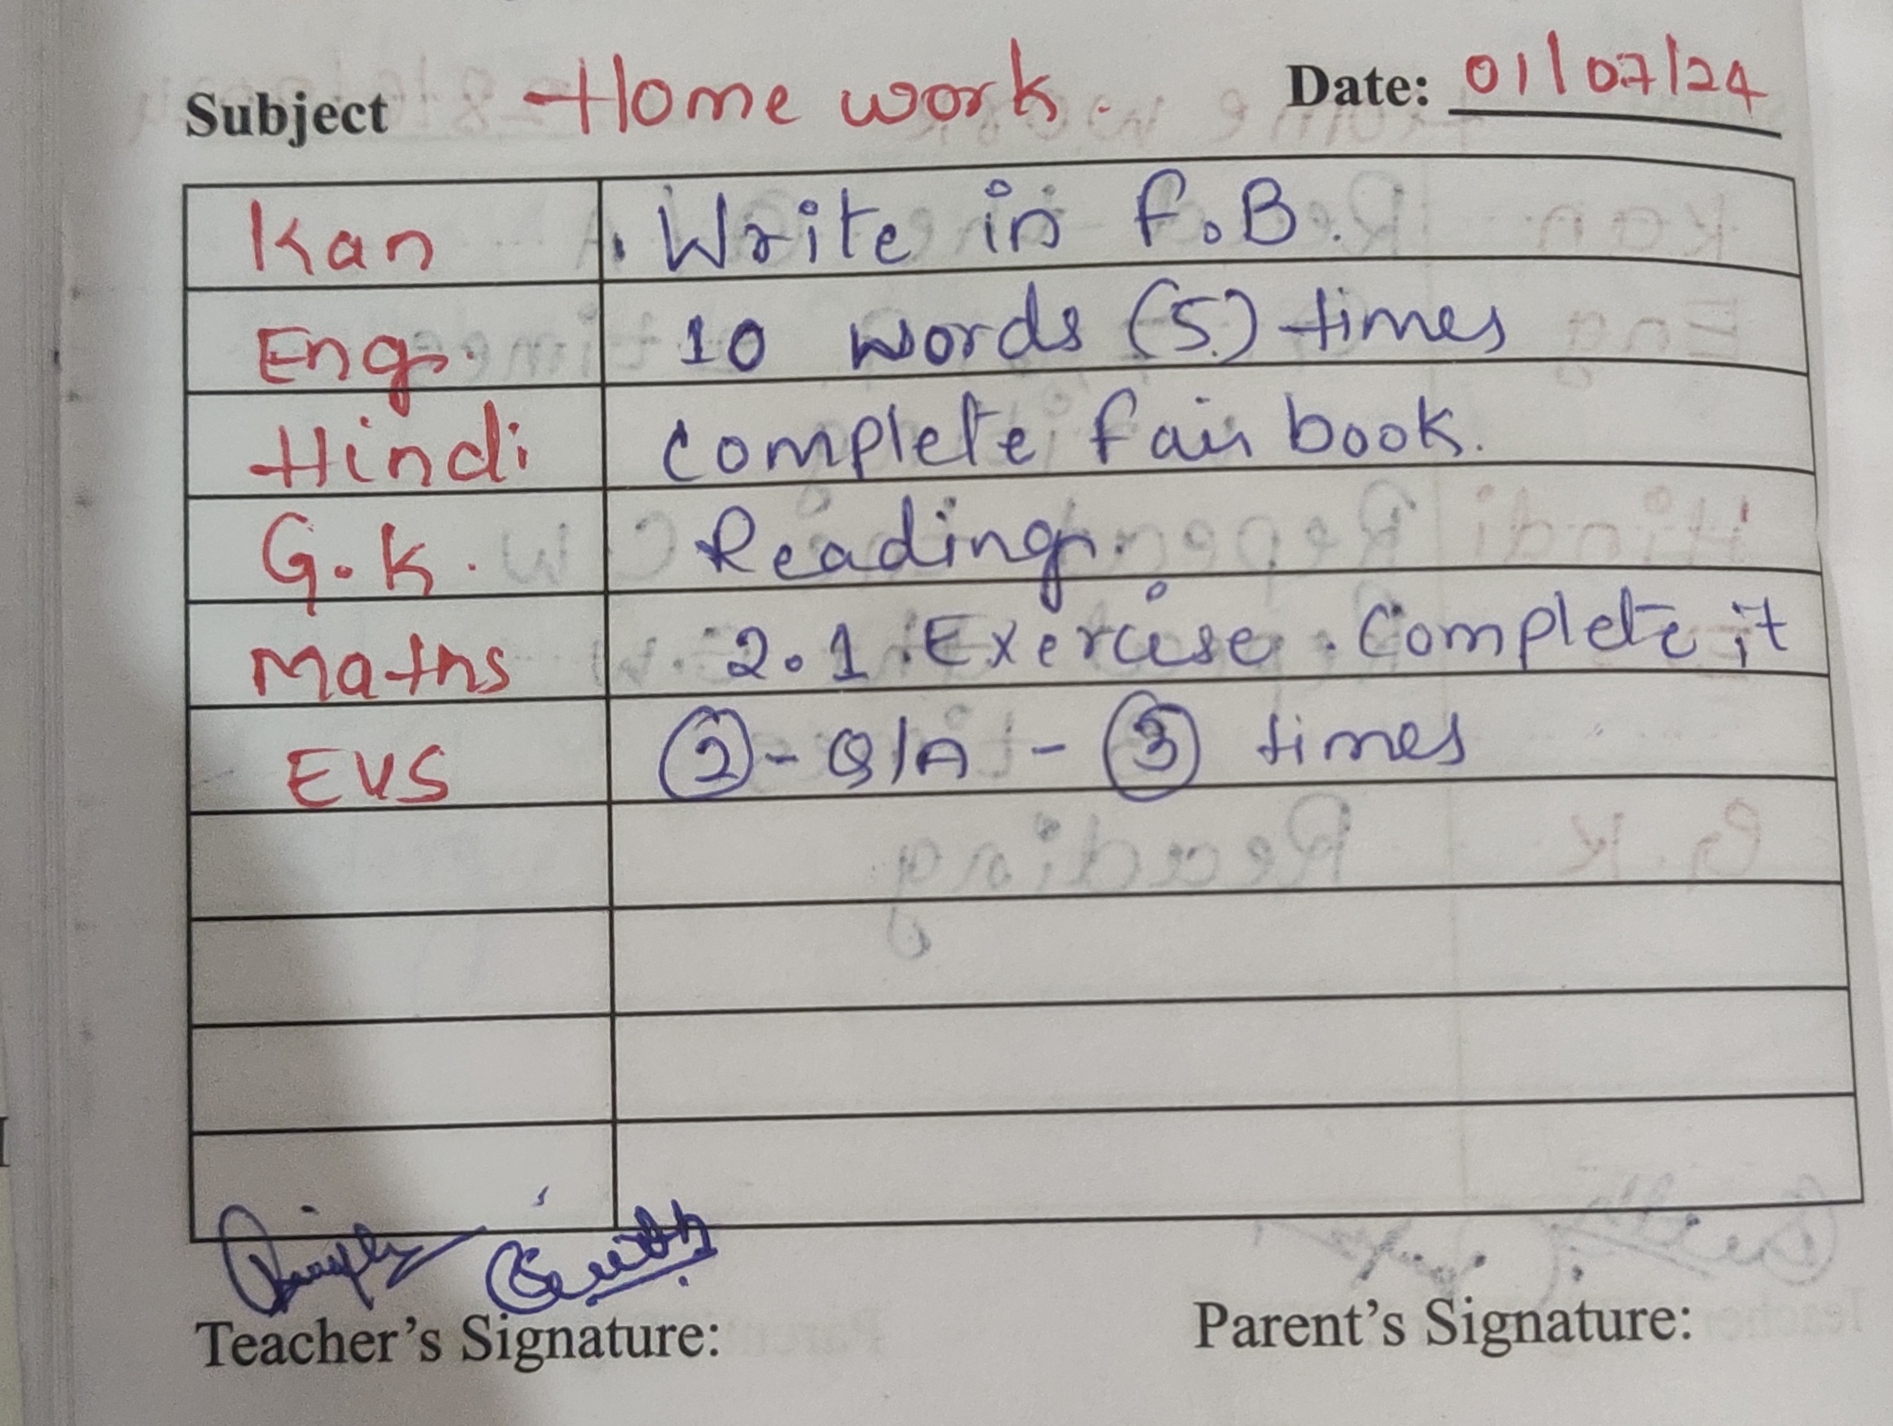 Subject Home work. Date: 01/07/24
Kan . Write in F.B.
Eng. 10 words (5) times
Hindi Complete fair book.
G.K. Reading.
Maths 2.1 Exercise. Complete it
EVS 2 - Q/A - 3 times
Teacher's Signature: Parent's Signature: